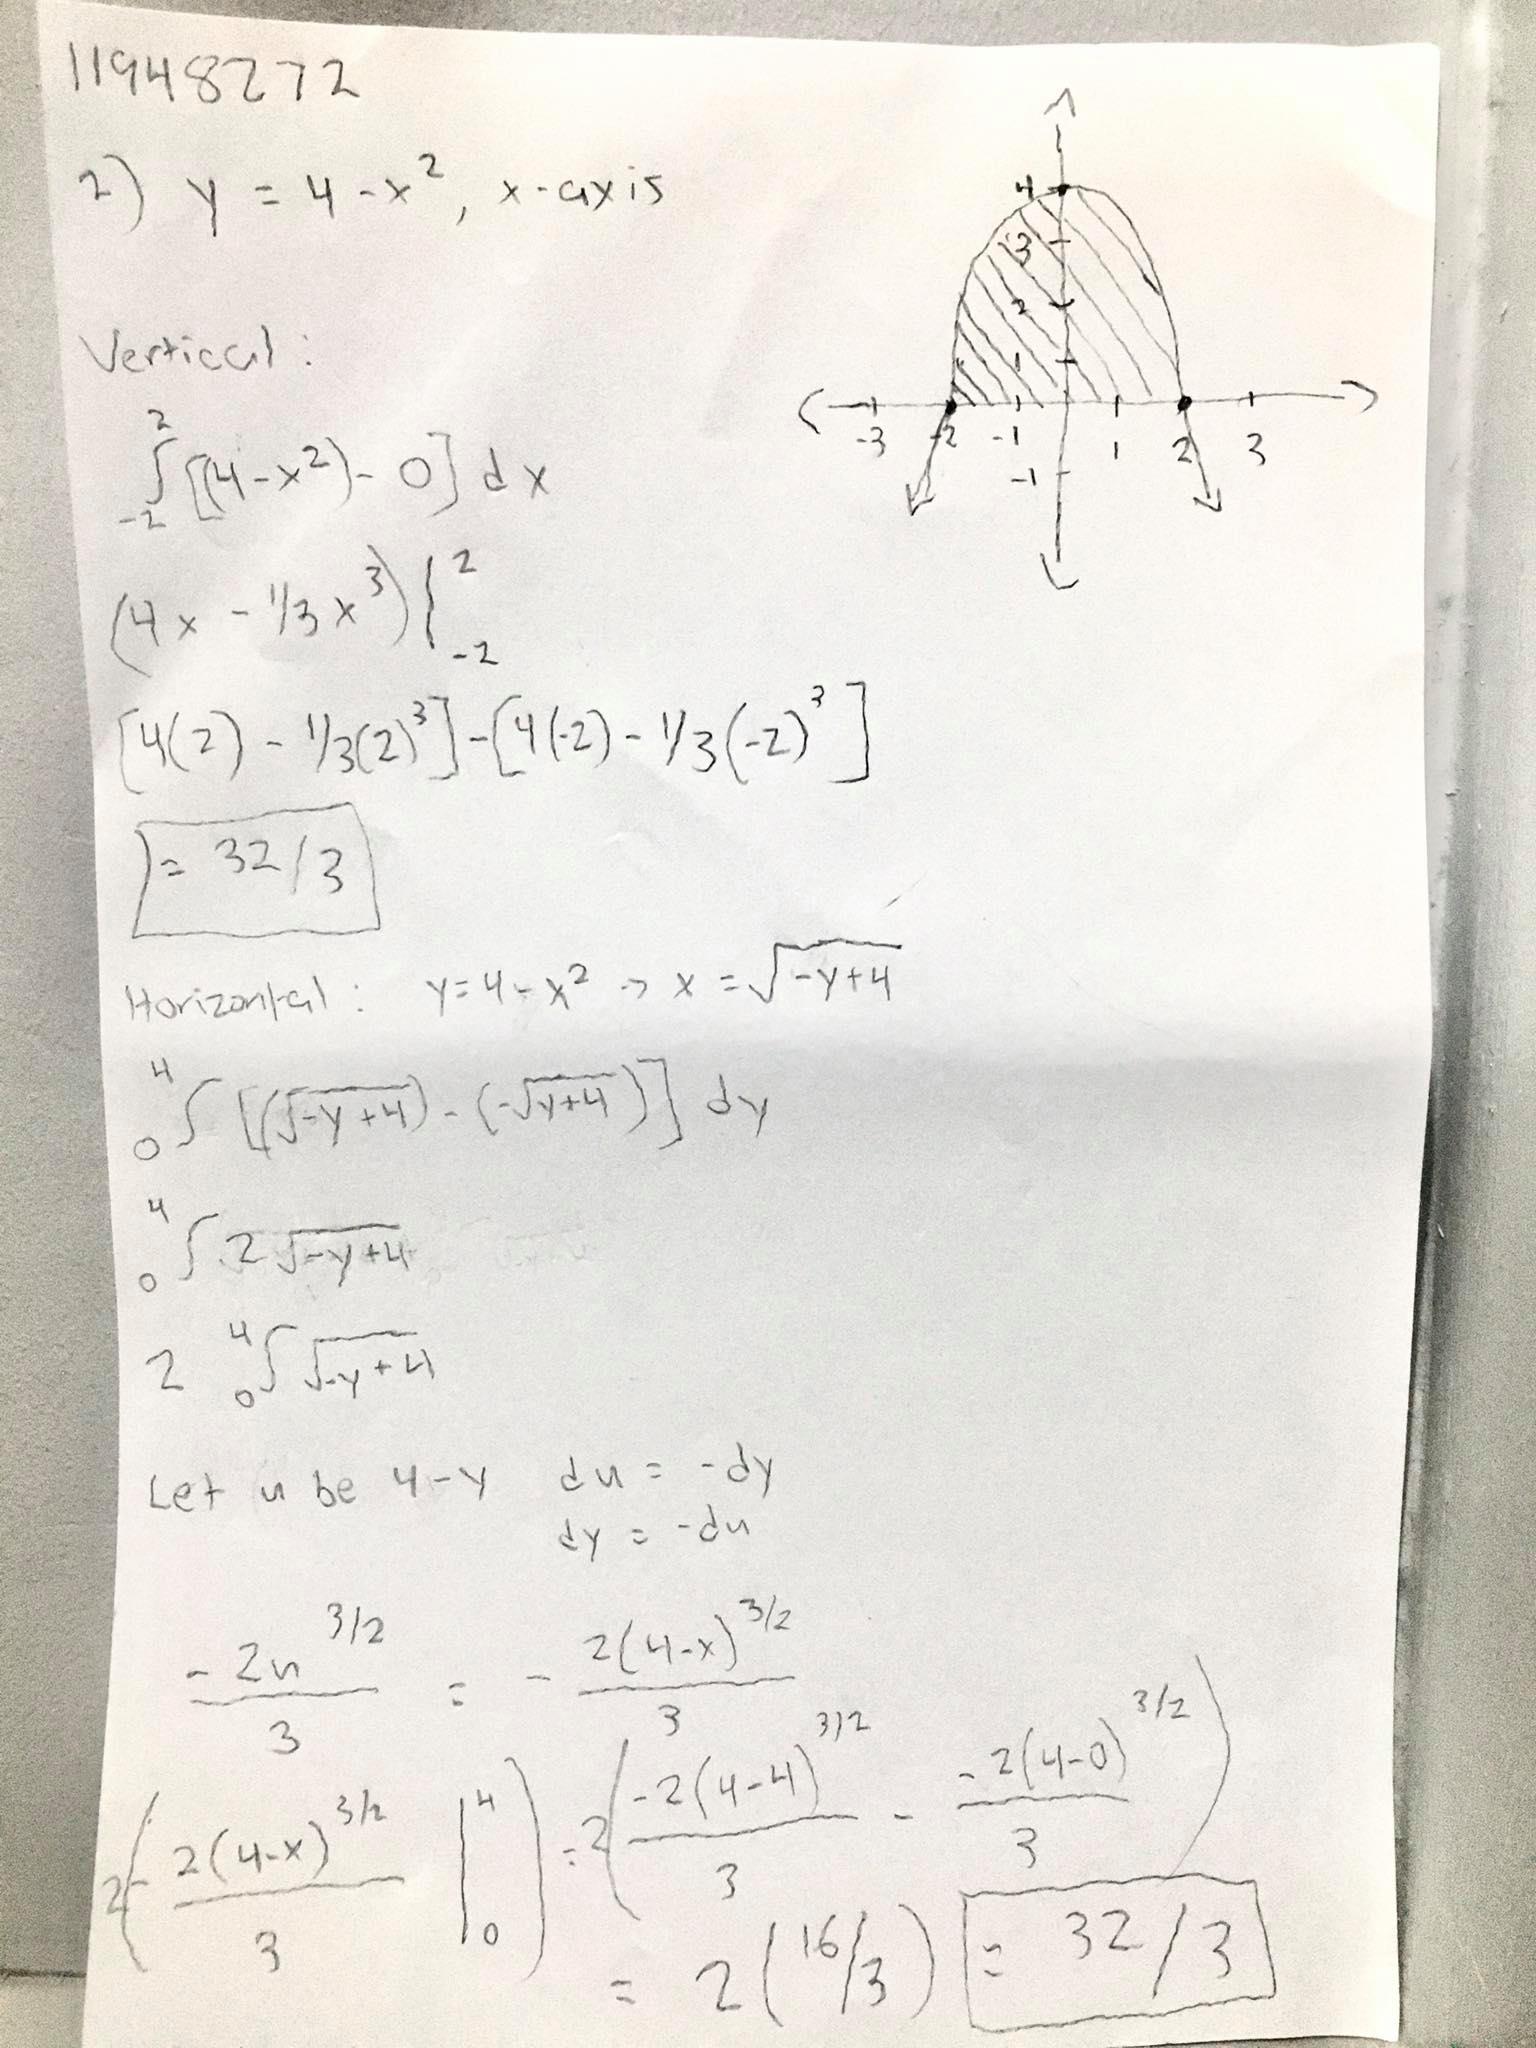 11948272
2) y = 4 - x², x-axis
4
3
2
1
-3 -2 -1 1 2 3
-1
Vertical:
∫₋₂² [(4-x²) - 0] dx
(4x - 1/3x³) |₋₂²
[4(2) - 1/3(2)³] - [4(-2) - 1/3(-2)³]
= 32/3
Horizontal: y = 4 - x² → x = √(-y+4)
₀⁴∫ [(√(-y+4)) - (-√(y+4))] dy
₀⁴∫ 2√(-y+4)
2 ₀⁴∫ √(-y+4)
Let u be 4-y du = -dy
dy = -du
-2u^(3/2)/3 = -2(4-x)^(3/2)/3
2(-2(4-x)^(3/2)/3 |₀⁴) = 2(-2(4-4)^(3/2)/3 - -2(4-0)^(3/2)/3)
= 2(16/3) = 32/3